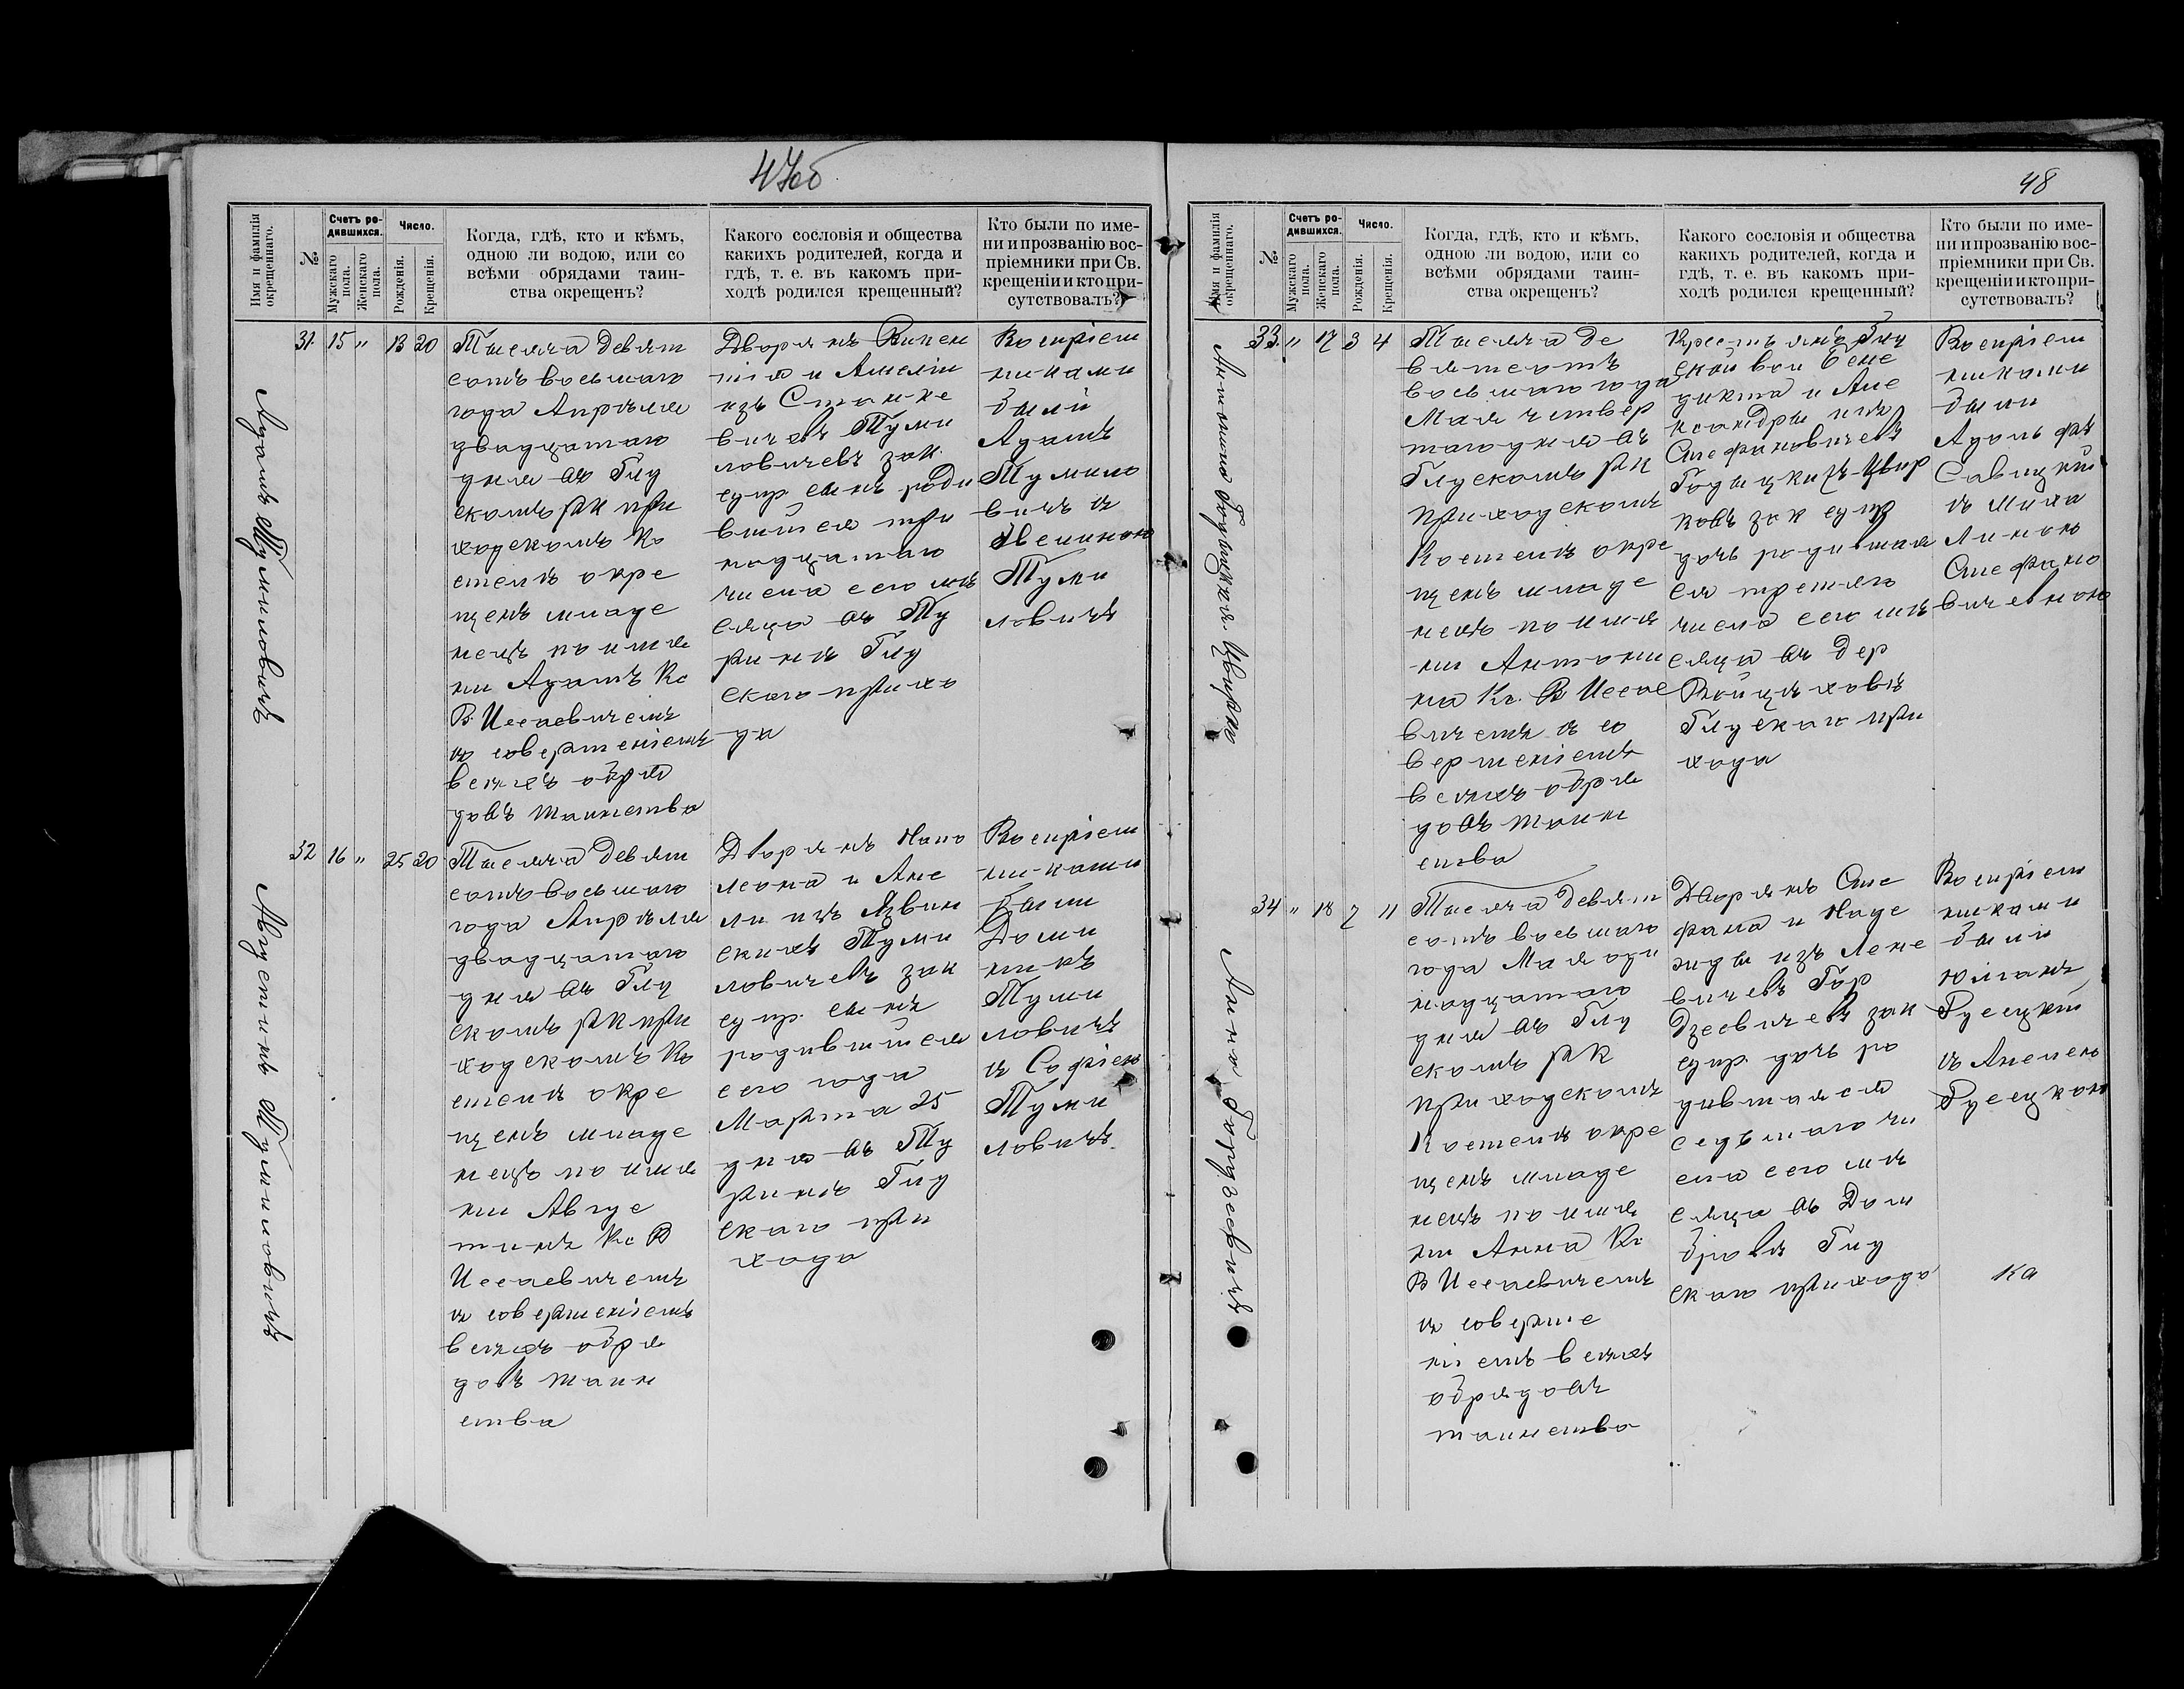 47об
Имя и фамилія
окрещеннаго.
№
Счетъ ро-
дившихся.
Мужскаго
пола.
Женскаго
пола.
Число.
Рожденія.
Крещенія.
Когда, гдѣ, кто и кѣмъ,
одною ли водою, или со
всѣми обрядами таин-
ства окрещенъ?
Какого сословія и общества
какихъ родителей, когда и
гдѣ, т. е. въ какомъ при-
ходѣ родился крещенный?
Кто были по име-
ни и прозванію вос-
пріемники при Св.
крещеніи и кто при-
сутствовалъ?
Адамъ Тумиловичъ
31 15 " 13 20
Тысяча девят
сотъ восьмаго
года Апрѣля
двадцатаго
дня въ Глу
скомъ РК при
ходскомъ Ко
стелѣ окре
щенъ младе
нецъ по имя
ни Адамъ Кс
В. Иссаевичемъ
съ совершеніемъ
всѣхъ обря
довъ таинства
Дворянъ Викен
тія и Амеліи
изъ Станке
вичевъ Туми
ловичевъ зак.
супр. сынъ роди
вшійся три
надцатаго
числа сего мѣ
сяца въ Ту
ринѣ Глу
скаго прихо
да
Воспріем
никами
были
Адамъ
Тумило
вичъ съ
Эвелиною
Туми
ловичъ
Августинъ Тумиловичъ
32 16 " 25 20
Тысяча девят
сотъ восьмаго
года Апрѣля
двадцатаго
дня въ Глу
скомъ РК при
ходскомъ Ко
стелѣ окре
щенъ младе
нецъ по имя
ни Авгус
тинъ Кс В
Иссаевичемъ
съ совершеніемъ
всѣхъ обря
довъ таин
ства
Дворянъ Напо
леона и Ане
ли изъ Язвин
скихъ Туми
ловичевъ зак
супр. сынъ
родившійся
сего года
Марта 25
дня въ Ту
ринѣ Глу
скаго при
хода
Воспріем
никами
были
Доми
никъ
Туми
ловичъ
съ Софіею
Туми
ловичъ
48
Имя и фамилія
окрещеннаго.
№
Счетъ ро-
дившихся.
Мужскаго
пола.
Женскаго
пола.
Число.
Рожденія.
Крещенія.
Когда, гдѣ, кто и кѣмъ,
одною ли водою, или со
всѣми обрядами таин-
ства окрещенъ?
Какого сословія и общества
какихъ родителей, когда и
гдѣ, т. е. въ какомъ при-
ходѣ родился крещенный?
Кто были по име-
ни и прозванію вос-
пріемники при Св.
крещеніи и кто при-
сутствовалъ?
Антонина Годыцкая-Цвирко
33 " 17 3 4
Тысяча де
вятсотъ
восьмаго года
Мая четвер
таго дня въ
Глускомъ РК
приходскомъ
Костелѣ окре
щенъ младе
нецъ по имя
ни Антони
на Кс. В Иссае
вичемъ съ со
вершеніемъ
всѣхъ обря
довъ таин
ства
Крестьянъ Глу
ской вол Бене
дикта и Але
ксандры изъ
Стефановичевъ
Годыцкихъ-Цвир
ковъ зак супр
дочь родившая
ся третьяго
числа сего мѣ
сяца въ дер
Войцѣховѣ
Глускаго при
хода
Воспріем
никами
были
Адольфъ
Савицкій
съ Миха
линою
Стефано
вичевною
Анна Гордзеевичъ
34 " 18 7 11
Тысяча девят
сотъ восьмаго
года Мая оди
надцатаго
дня въ Глу
скомъ РК
приходскомъ
Костелѣ окре
щенъ младе
нецъ по имя
ни Анна Кс
В Иссаевичемъ
съ соверше
ніемъ всѣхъ
обрядовъ
таинства
Дворянъ Сте
фана и Наде
жды изъ Лене
вичевъ Гор
дзеевичевъ зак
супр. дочь ро
дившаяся
седьмаго чи
сла сего мѣ
сяца въ Дом
бровѣ Глу
скаго прихода
Воспріем
никами
были
Юліанъ
Русецкій
съ Анелею
Русецкою